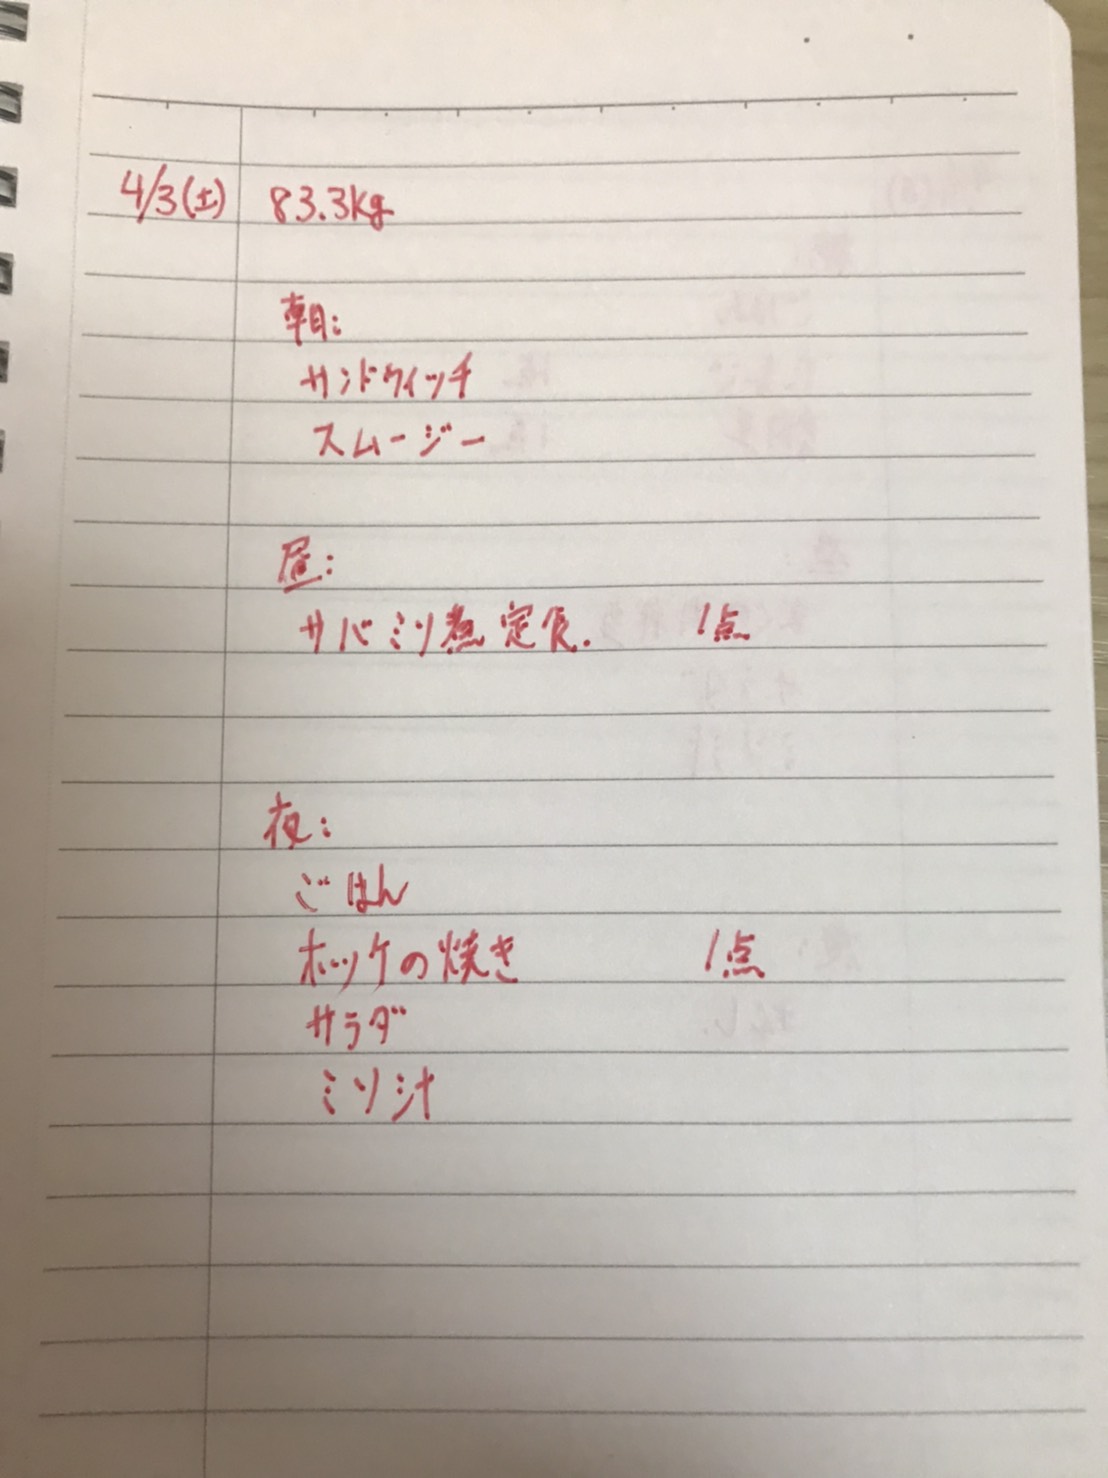 4/3(土) 83.3kg
朝:
サンドウィッチ
スムージー
昼:
サバミソ煮定食. 1点
夜:
ごはん
ホッケの焼き 1点
サラダ
ミソ汁